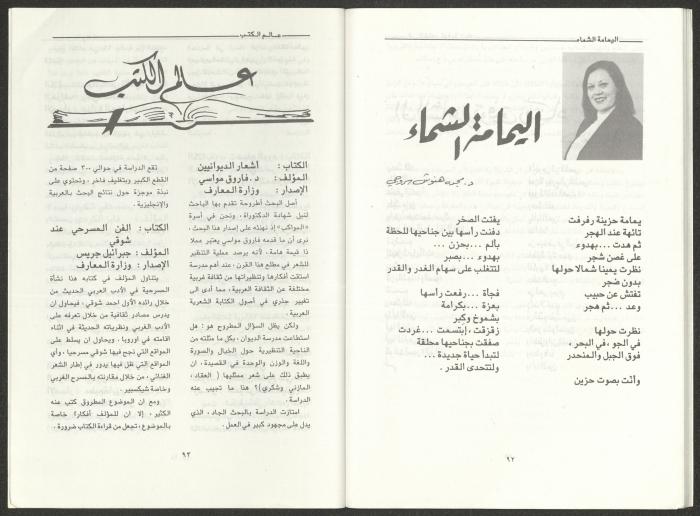 اليمامة الشماء
اليمامة الشماء
يمامة حزينة رفرفت
تائهة عند الهجر
ثم هدت ...بهدوء
على غصن شجر
نظرت يمينا شمالا حولها
بدون ضجر
تفتش عن حبيب
وعد ...ثم هجر
نظرت حولها
في الجو ،في البحر ،
فوق الجبل والمنحدر
وأنّت بصوت حزين
يفتت الصخر
دفنت رأسها بين جناحيها للحظة
بألم ...بحزن ...
بهدوء ...بصبر
لتتغلب على سهام الغدر والقدر
فجأة ...رفعت رأسها
بعزة ...بكرامة
بشموخ وكبر
زقزقت ،إبتسمت ...غردت
صفقت بجناحيها محلقة
لتبدأ حياة جديدة ...
ولتتحدى القدر .
٩٢
عالم الكتب
عالم الكتب
الكتاب : أشعار الديوانيين
المؤلف : د.فاروق مواسي
الإصدار : وزارة المعارف
أصل البحث أطروحة تقدم بها الباحث
لنيل شهادة الدكتوراة، ونحن في أسرة
«المواكب» إذ نهنئه على إصدار هذا البحث ،
نرى أن ما قدمه فاروق مواسي يعتبر عملا
ذا قيمة هامة، لأنه يرصد عملية التنظير
للشعر في مطلع هذا القرن، عند أهم مدرسة
استقت أفكارها وتنظيراتها من ثقافة غربية
مختلفة عن الثقافة العربية، مما أدى الى
تغيير جذري في أصول الكتابة الشعرية
العربية .
ولكن يظل السؤال المطروح هو: هل
استطاعت مدرسة الديوان، بكل ما مثلته من
الناحية التنظيرية حول الخيال والصورة
واللغة والوزن والوحدة في القصيدة، ان
يطبق ذلك على شعر ممثليها ( العقاد ،
المازني وشكري)؟ هذا ما تجيب عنه
الدراسة .
امتازت الدراسة بالبحث الجاد، الذي
يدل على مجهود كبير في العمل .
تقع الدراسة في حوالي ٣٠٠ صفحة من
القطع الكبير وبتغليف فاخر، وتحتوي على
نبذة موجزة حول نتائج البحث بالعربية
والإنجليزية .
الكتاب : الفن المسرحي عند
شوقي
المؤلف : جبرائيل جريس
الإصدار : وزارة المعارف
يتناول المؤلف في كتابه هذا نشأة
المسرحية في الأدب العربي الحديث من
خلال رائده الأول احمد شوقي ، فيحاول ان
يدرس مصادر ثقافية من خلال تعرفه على
الأدب الغربي ونظرياته الحديثة في اثناء
اقامته في اوروبا ، ويحاول ان يسلط على
المواقع التي نجح فيها شوقي مسرحيا ، وأي
المواقع التي ظل فيها يدور في إطار الشعر
الغنائي ، من خلال مقارنته بالمسرح الغربي
وخاصة شيكسبير .
ومع ان الموضوع المطروق كتب عنه
الكثير ، إلا ان للمؤلف أفكارا خاصة
بالموضوع ، تجعل من قراءة الكتاب ضرورة .
٩٣